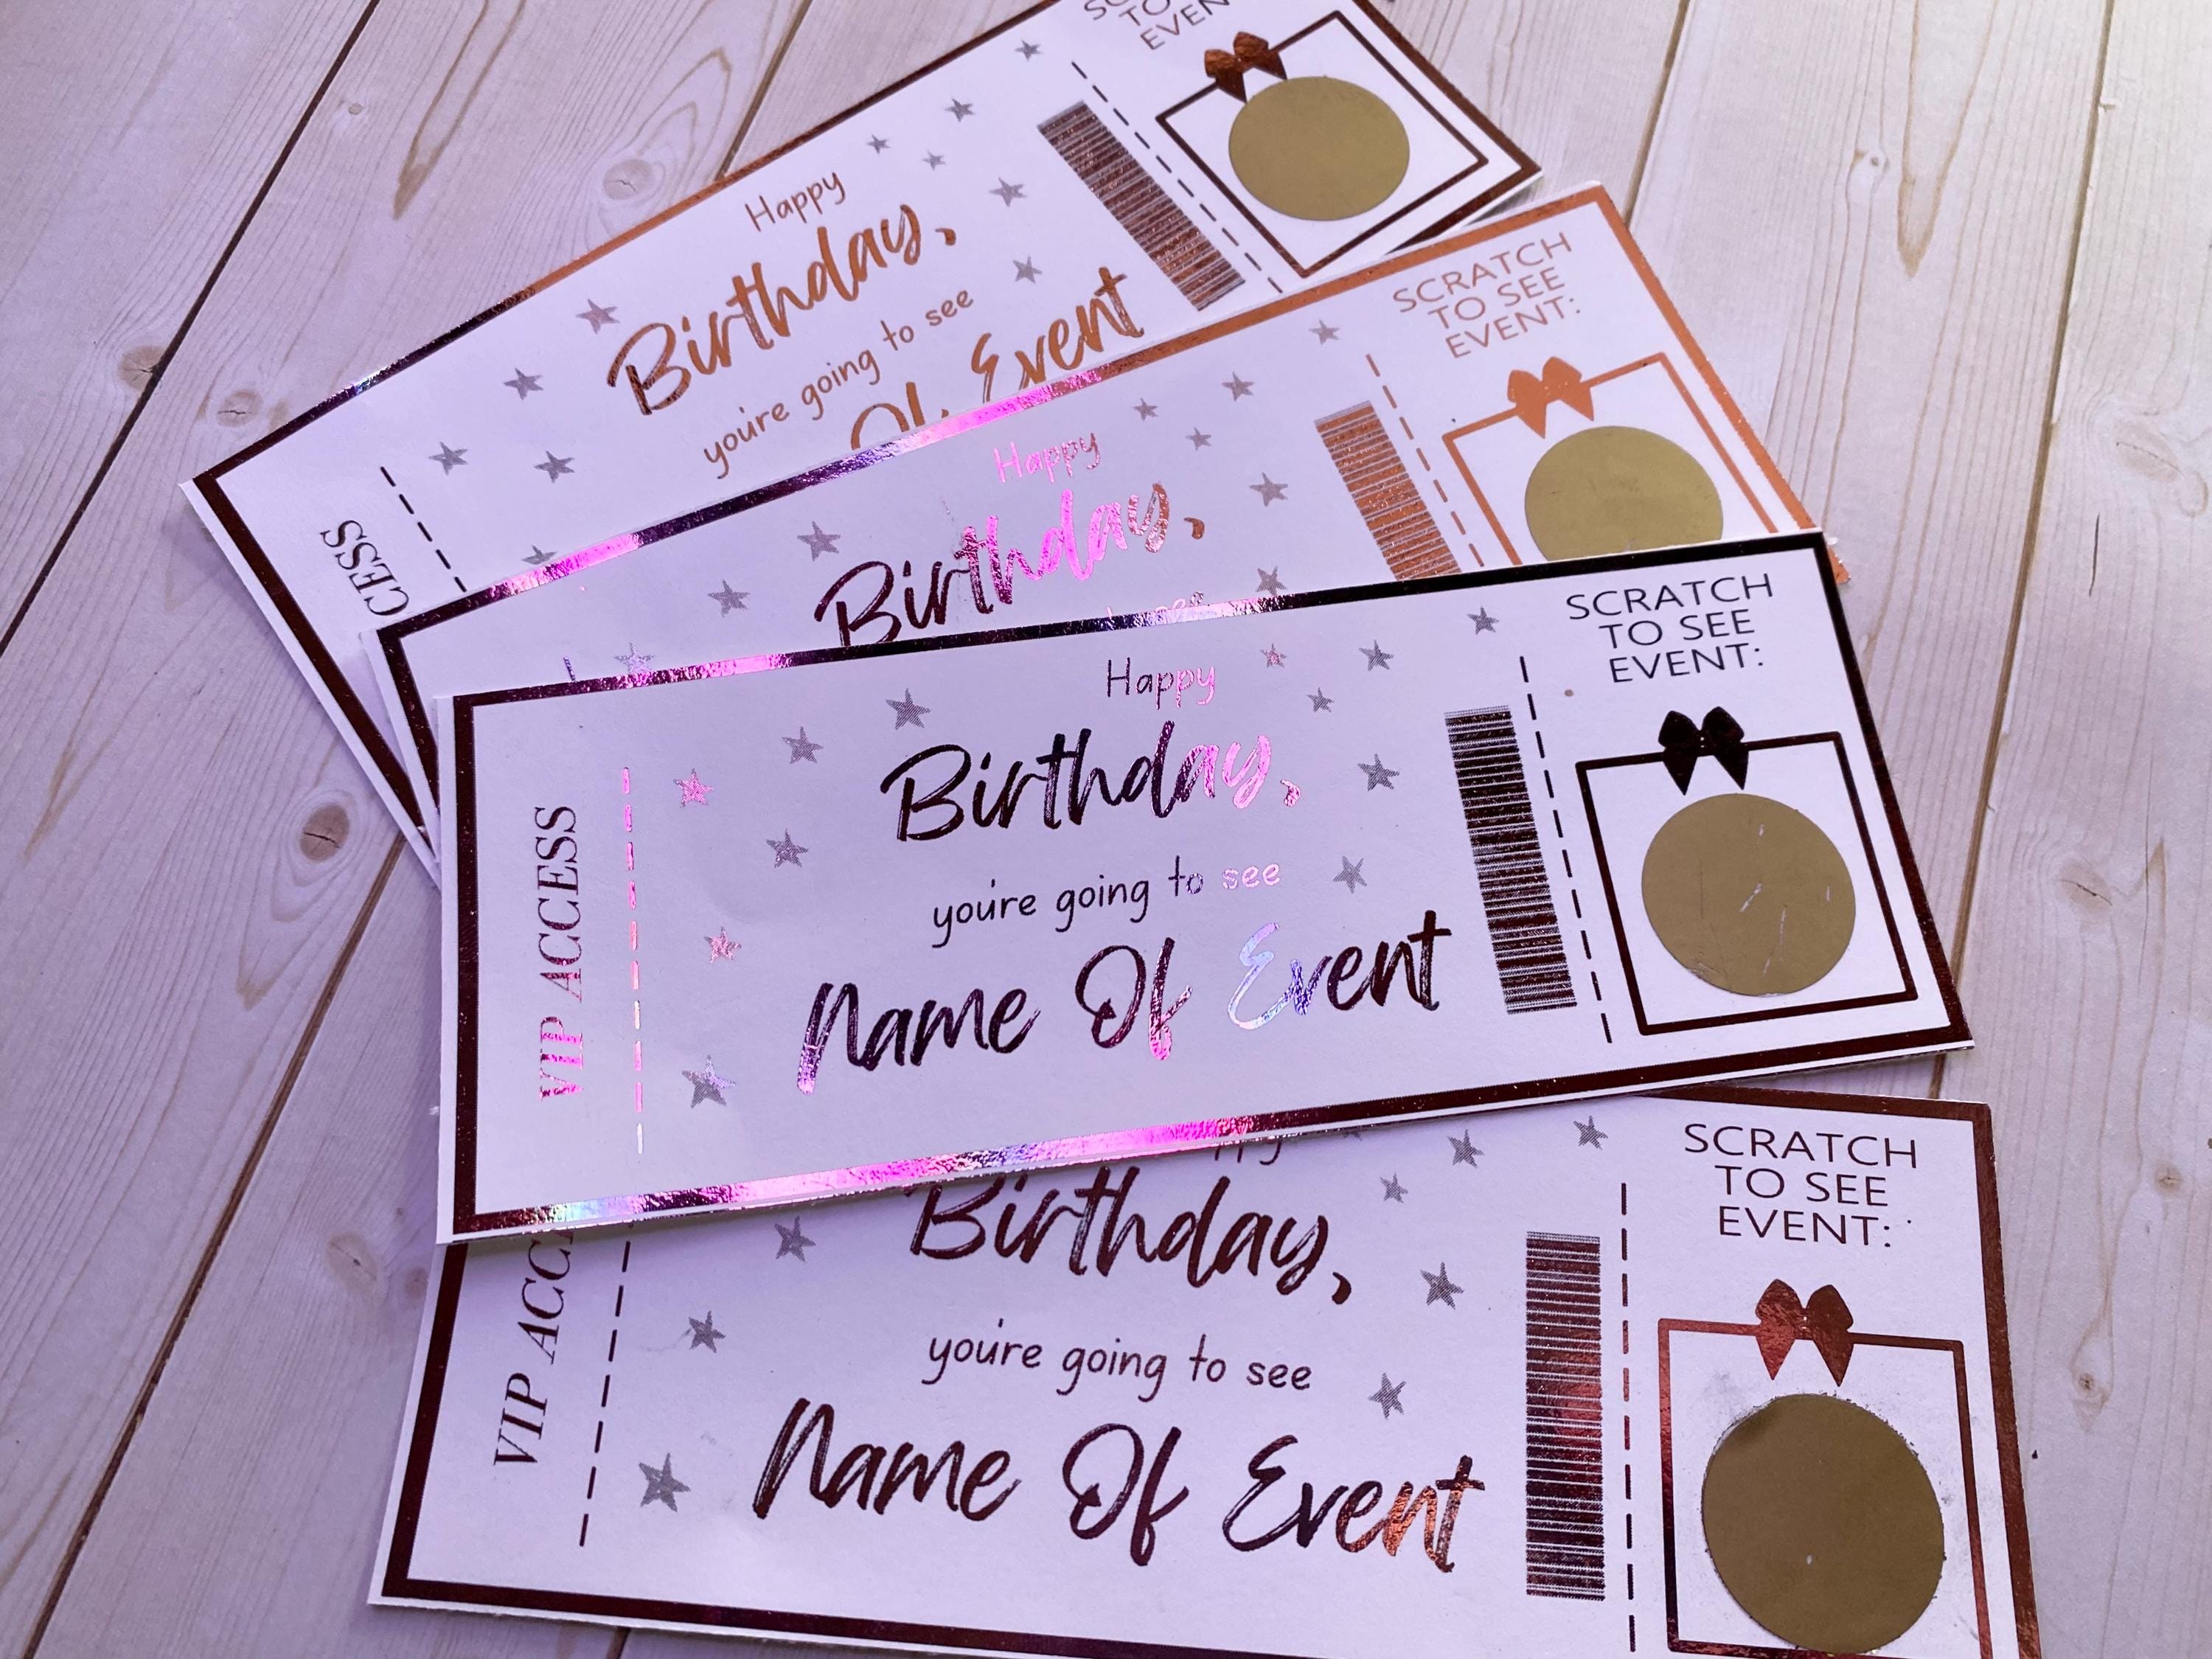 SCRATCH
TO SEE
EVENT:
Happy
Birthday,
you're going to see
Of Event
CESS
SCRATCH
TO SEE
EVENT:
Happy
Birthday,
SCRATCH
TO SEE
EVENT:
Happy
Birthday,
you're going to see
Name Of Event
VIP ACCESS
SCRATCH
TO SEE
EVENT:
Birthday,
you're going to see
Name Of Event
VIP ACC